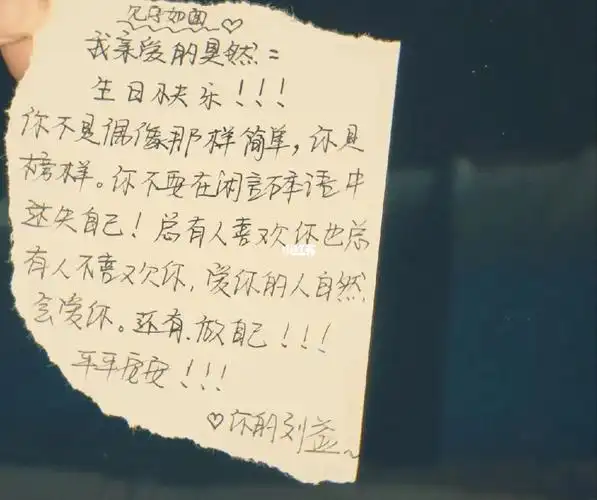 见字如面♡
我亲爱的昊然：
生日快乐！！！
你不是偶像那样简单，你是
榜样。你不要在闲言碎语中
迷失自己！总有人喜欢你也总
有人不喜欢你，爱你的人自然
会爱你。还有，做自己！！！
平平安安！！！
♡你的刘益~
小红书